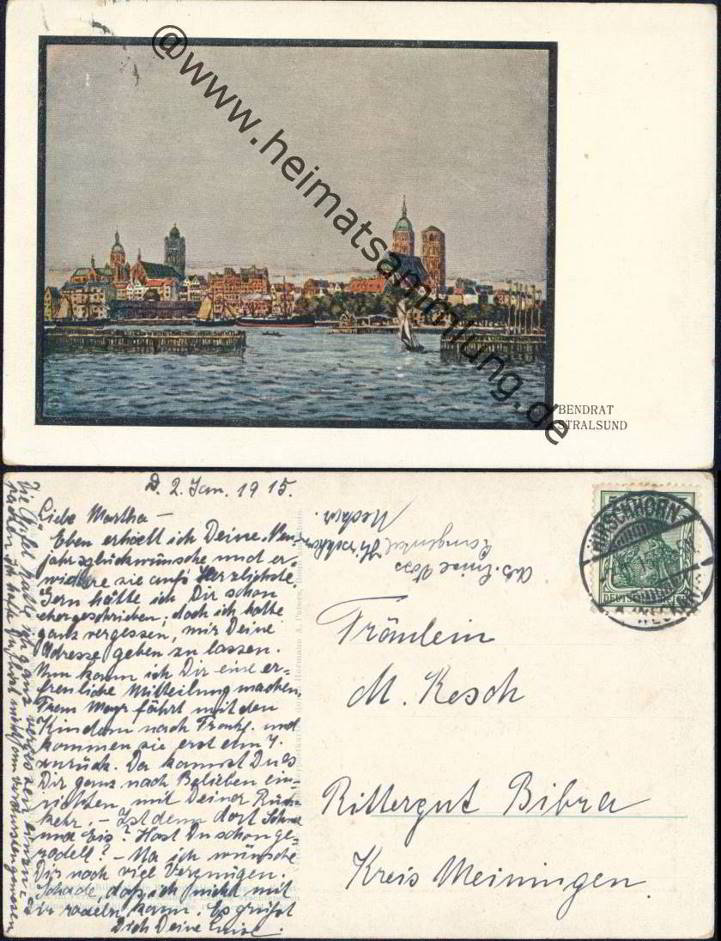 @www.heimatsammlung.de
BENDRAT
STRALSUND
D. 2. Jan. 1915.
Liebe Martha –
Eben erhielt ich Deine Neu-
jahrsglückwünsche und er-
widere sie aufs Herzlichste.
Gern hätte ich Dir schon
eher geschrieben; doch ich hatte
ganz vergessen, mir Deine
Adresse geben zu lassen.
Nun kann ich Dir eine er-
freuliche Mitteilung machen,
Frau Mayr fährt mit den
Kindern nach Frankf. und
kommen sie erst den 7.
zurück. Da kannst Du es
Dir ganz nach Belieben ein-
richten, mit Deiner Rück-
kehr. – Ist denn dort Schnee
und Eis? Hast Du schon ge-
rodelt? – Na ich wünsche
Dir noch viel Vergnügen.
Schade, daß ich nicht mit
Dir rodeln kann. Es grüßt
Dich Deine Luise.
Abs. Luise
Hirschhorn
Neckar.
HIRSCHHORN
NECKAR
DEUTSCHES
Fräulein
M. Resch
Rittergut Bibra
Kreis Meiningen.